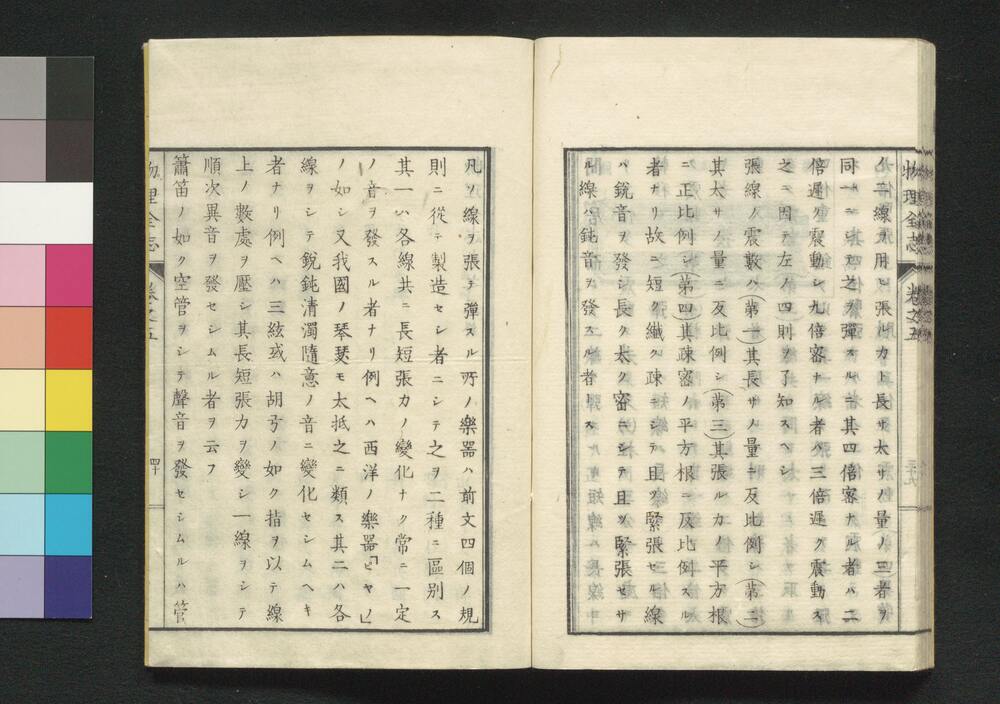 物理全志 卷之五
線ヲ用ヒ張ルカト長サ太サノ量ノ三者ヲ
同一ニシテ之ヲ彈スルニ其四倍密ナル者ハ二
倍遲ク震動シ九倍密ナル者ハ三倍遲ク震動ス
之ニ因テ左ノ四則ヲ了知スヘシ
張線ノ震數ハ(第一)其長サノ量ニ反比例シ(第二)
其太サノ量ニ反比例シ(第三)其張ルカノ平方根
ニ正比例シ(第四)其疎密ノ平方根ニ反比例スル
者ナリ故ニ短ク纎ク疎ニシテ且ツ緊張セル線
ハ銳音ヲ發シ長ク太ク密ニシテ且ツ緊張セサ
ル線ハ鈍音ヲ發スル者トス
凡ソ線ヲ張テ彈スル所ノ樂器ハ前文四個ノ規
則ニ從テ製造セシ者ニシテ之ヲ二種ニ區別ス
其一ハ各線共ニ長短張力ノ變化ナク常ニ一定
ノ音ヲ發スル者ナリ例ヘハ西洋ノ樂器「ピヤノ」
ノ如シ又我國ノ琴瑟モ太抵之ニ類ス其二ハ各
線ヲシテ銳鈍清濁隨意ノ音ニ變化セシムヘキ
者ナリ例ヘハ三絃或ハ胡弓ノ如ク指ヲ以テ線
上ノ數處ヲ壓シ其長短張力ヲ變シ一線ヲシテ
順次異音ヲ發セシムル者ヲ云フ
簫笛ノ如ク空管ヲシテ聲音ヲ發セシムルハ管
物理全志 卷之五 四十